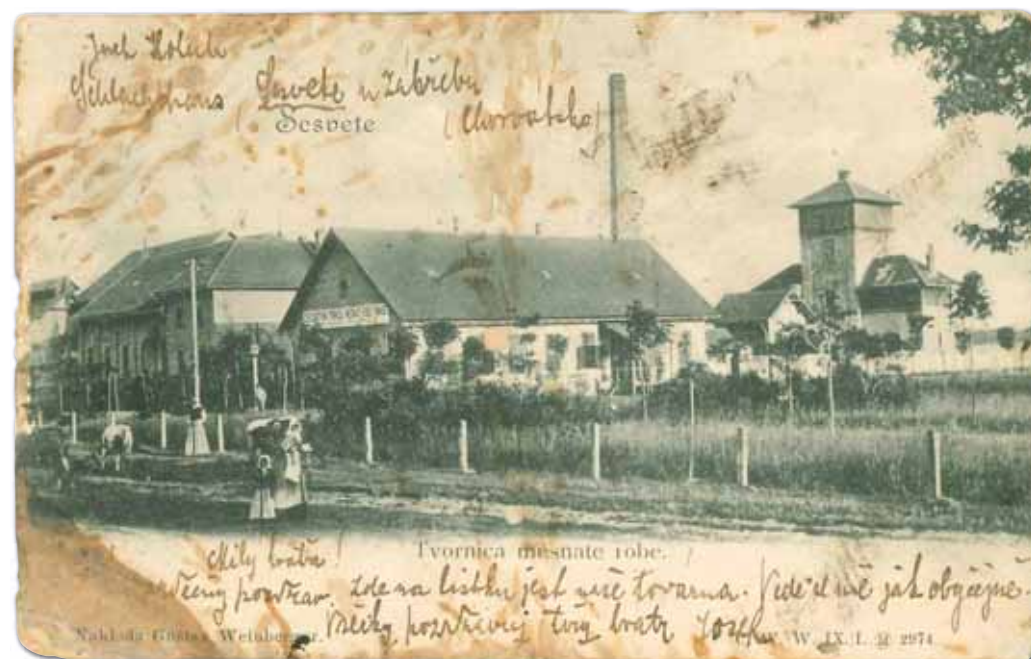 Josef
Schlachthaus, Sesvete u Zábřebu
(Chorvatsko)
Sesvete
Tvornica mesnate robe.
Milý bratře!
pozdrav. Zde na lístku jest naše tovarna. Vede se mě jak obyčejně.
pozdravuj tvůj bratr Josef
Naklada Gustav Weinberger.
W. IX. L. 2974